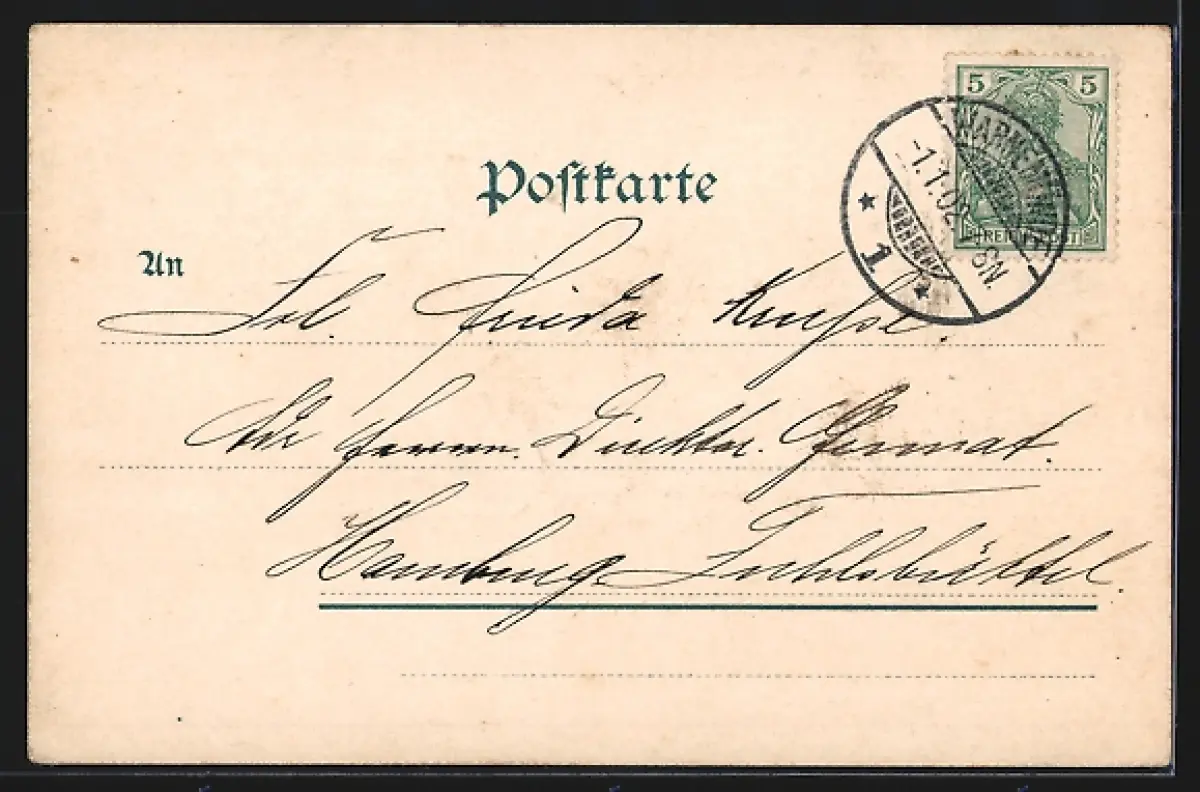 5 5
WARNEMÜNDE
-1.1.02 6-8N
REICHSPOST
* 1 *
Postkarte
An
Frl. Frieda
Adr Herrn Direktor
Hamburg Fuhlsbüttel